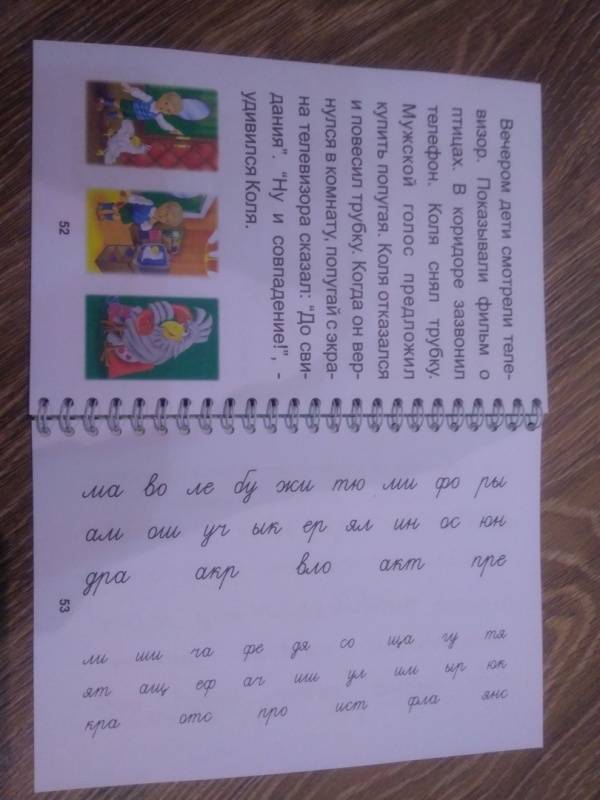 Вечером дети смотрели теле-
визор. Показывали фильм о
птицах. В коридоре зазвонил
телефон. Коля снял трубку.
Мужской голос предложил
купить попугая. Коля отказался
и повесил трубку. Когда он вер-
нулся в комнату, попугай с экра-
на телевизора сказал: “До сви-
дания”. “Ну и совпадение!”, -
удивился Коля.
52
ма во ле бу жи тю ми фо ры
ам ош уч ык ер ял ин ос юн
дра акр вло акт пре
ли ши ча фе дя со ща гу тя
ят ащ еф ач иш ул им ыр юк
кра отс про ист фла янс
53